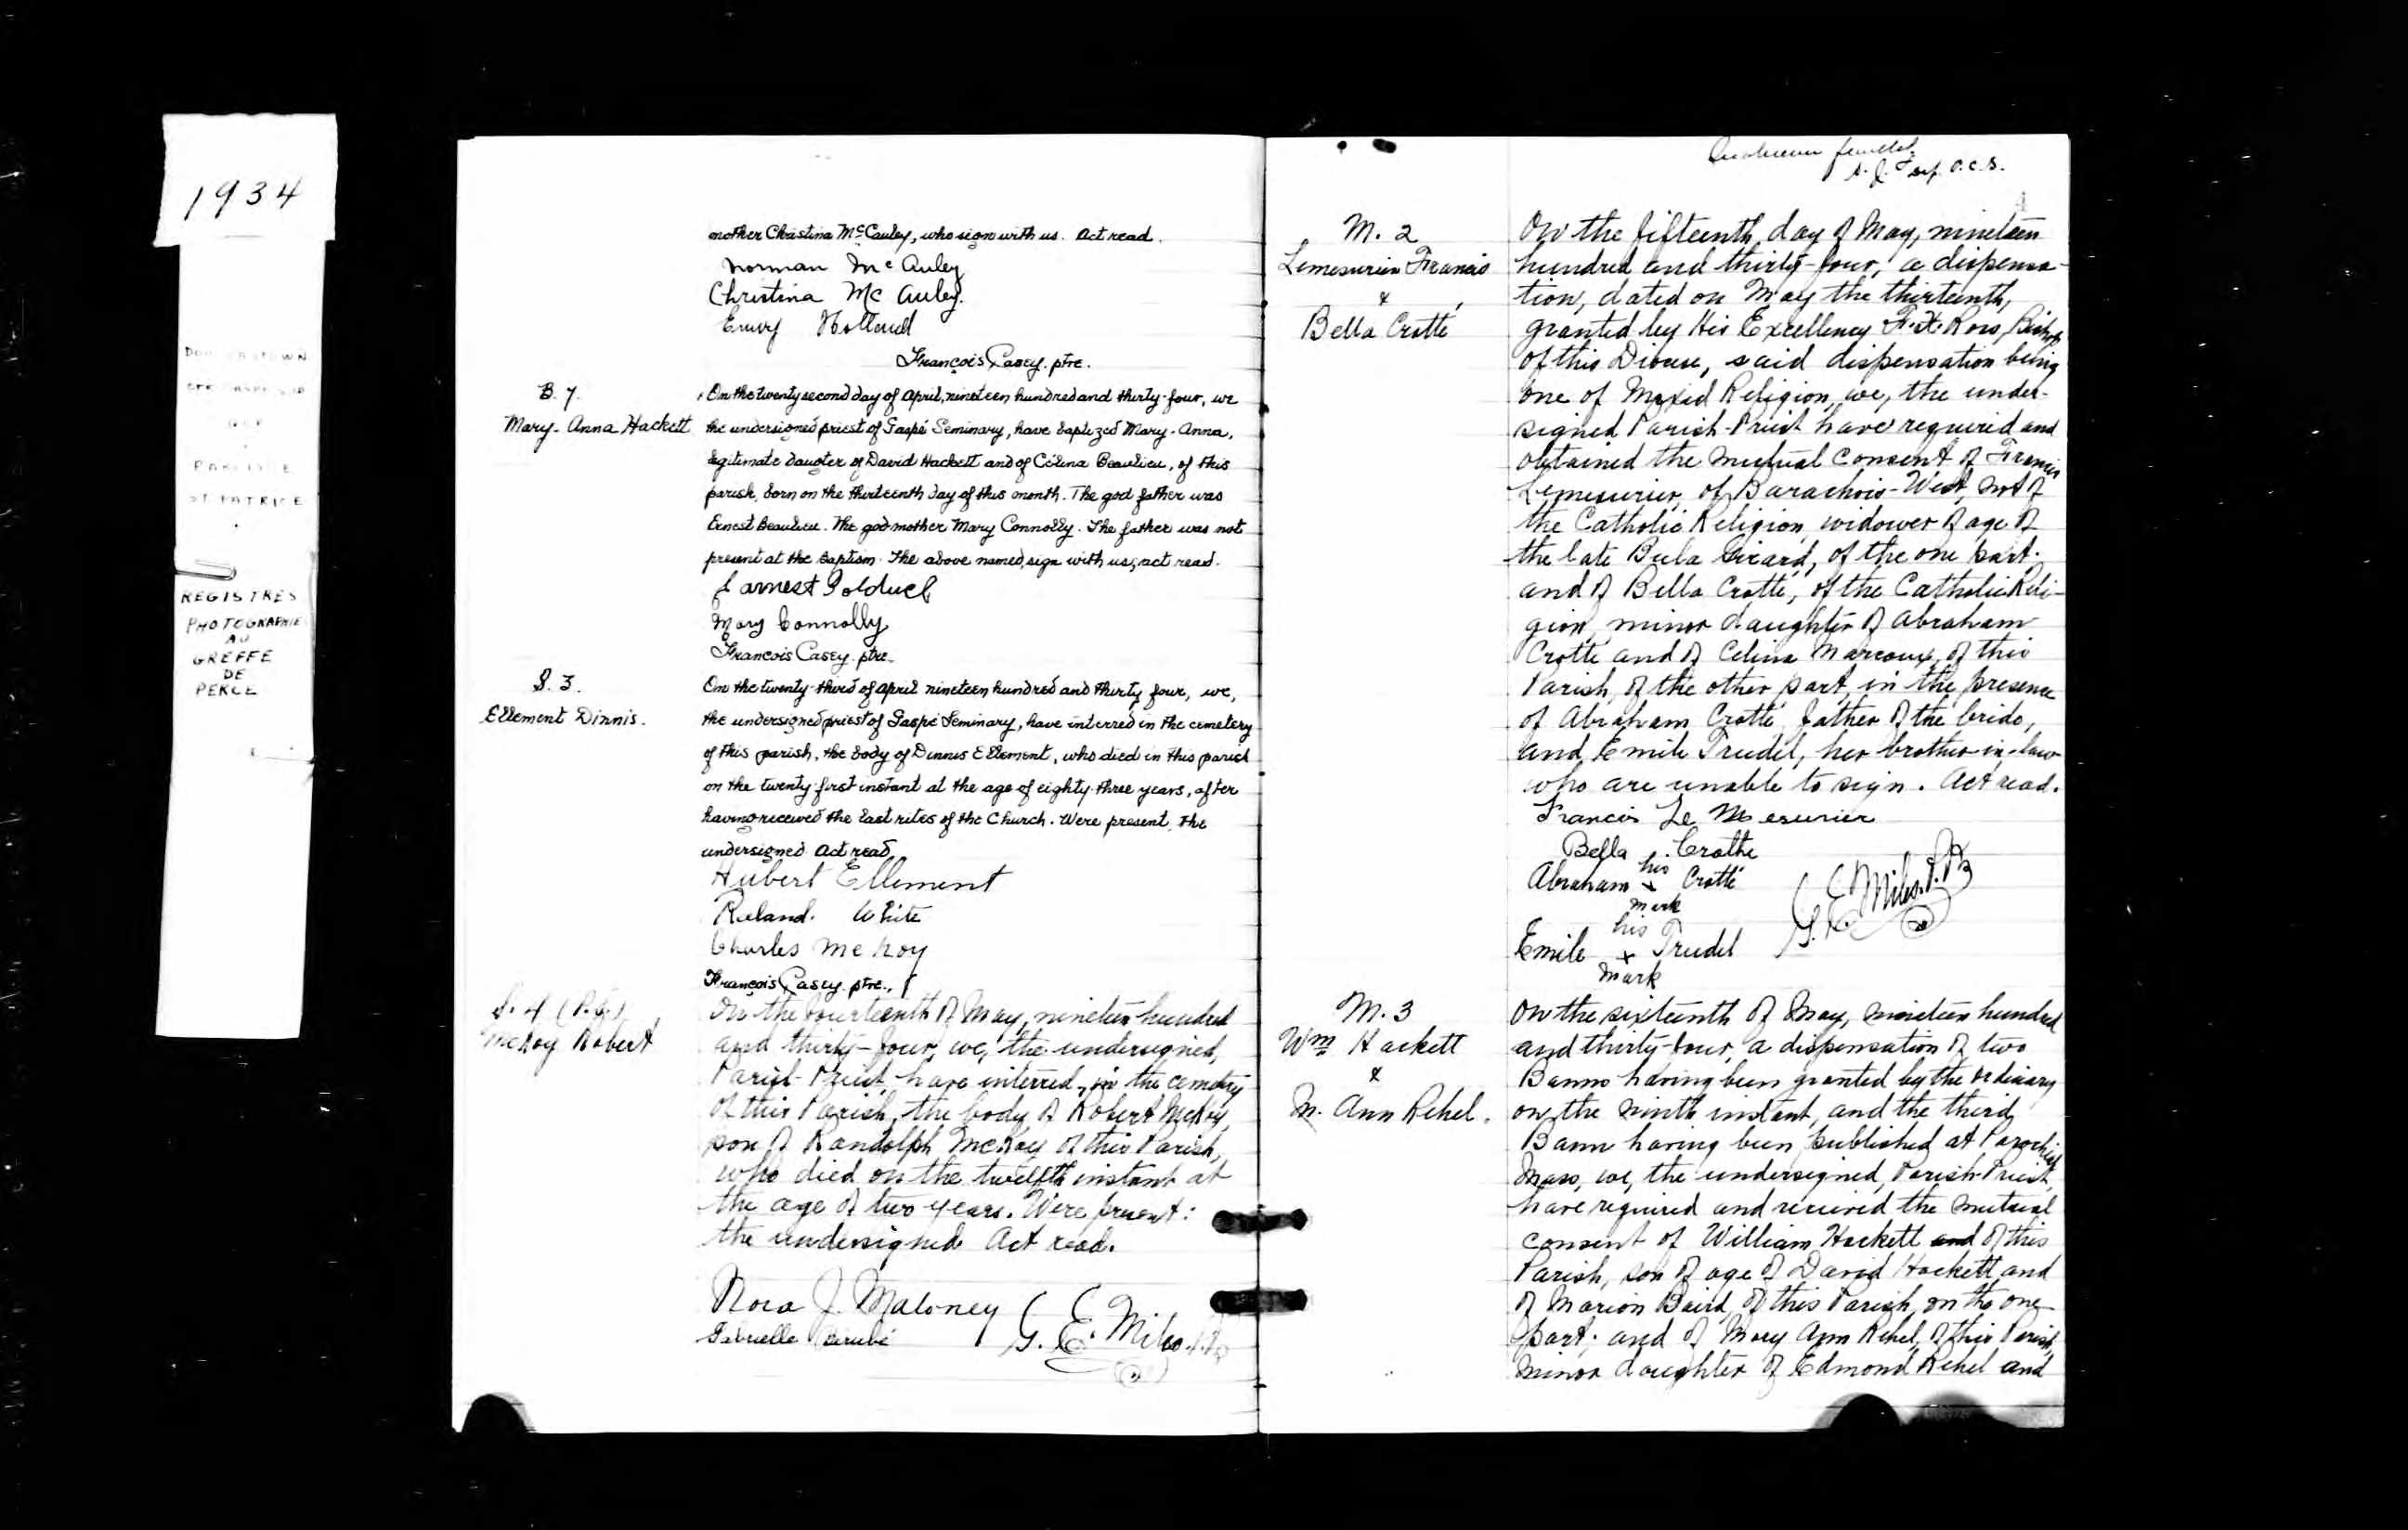 1934
REGISTRES
PHOTOGRAPHIE
AU
GREFFE
DE
PERCE
PAROISSE
ST PATRICE
mother Christina McCauley, who sign with us. Act read.
Norman McAuley
Christina McAuley.
Emery Holland
François Casey. ptre.
B. 7.
Mary-Anna Hackett
On the twenty second day of April, nineteen hundred and thirty-four, we
the undersigned priest of Gaspé Seminary, have baptized Mary-Anna,
legitimate daugter of David Hackett and of Célina Beaulieu, of this
parish, born on the thirteenth day of this month. The god father was
Ernest Beaulieu. The god-mother Mary Connolly. The father was not
present at the baptism. The above named, sign with us, act read.
Earnest
Mary Connolly
François Casey. ptre.
S. 3.
Ellement Dinnis.
On the twenty-third of April nineteen hundred and thirty four, we,
the undersigned priest of Gaspé Seminary, have interred in the cemetery
of this parish, the body of Dinnis Ellement, who died in this parish
on the twenty-first instant at the age of eighty-three years, after
having received the last rites of the Church. Were present, the
undersigned. Act read
Hubert Ellement
Roland. White
Charles McKoy
François Casey. ptre.
S. 4
McKoy Robert
On the fourteenth of May, nineteen hundred
and thirty-four, we, the undersigned,
Parish-Priest, have interred, in the cemetery
of this Parish, the body of Robert McKoy,
son of Randolph McKoy of this Parish,
who died on the twelfth instant at
the age of two years. Were present:
the undersigned. Act read.
Nora J. Maloney
Gabrielle Bérubé
G. E. Miles
M. 2
Lemesurier Francis
&
Bella Crotté
On the fifteenth day of May, nineteen
hundred and thirty-four, a dispensa-
tion, dated on May the thirteenth,
granted by His Excellency F. X. Ross, Bishop
of this Diocese, said dispensation being
one of Mixed Religion, we, the under-
signed Parish-Priest have required and
obtained the mutual consent of Francis
Lemesurier, of Barachois-West, not of
the Catholic Religion, widower of age of
the late Bula Girard, of the one part.
and of Bella Crotté, of the Catholic Reli-
gion, minor daughter of Abraham
Crotté and of Celina Marcoux, of this
Parish, of the other part, in the presence
of Abraham Crotté, father of the bride,
and Emile Trudel, her brother-in-law
who are unable to sign. Act read.
Francis Le Mesurier
Bella Crotte
his
Abraham x Crotté
mark
his
Emile x Trudel
mark
G. E. Miles
M. 3
Wm Hackett
&
M. Ann Rehel.
On the sixteenth of May, nineteen hundred
and thirty-four, a dispensation of two
Banns having been granted by the ordinary
on the ninth instant, and the third
Bann having been published at Parochial
Mass, we, the undersigned, Parish-Priest,
have required and received the mutual
consent of William Hackett and of this
Parish, son of age of David Hackett and
of Marion Baird, of this Parish, on the one
part; and of Mary Ann Rehel, of this Parish,
minor daughter of Edmond Rehel and